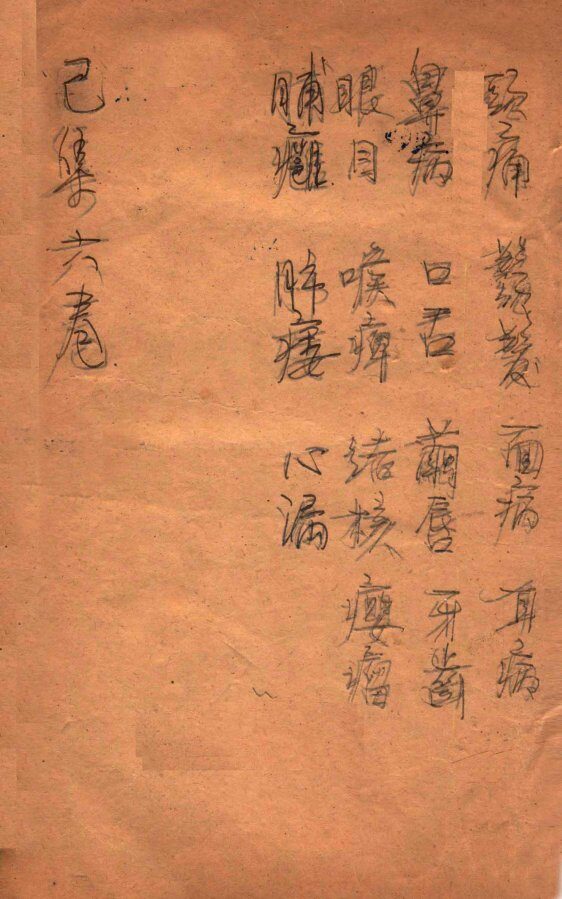 頭痛 鬚髮 面病 耳病
鼻病 口舌 繭唇 牙齒
眼目 喉痺 結核 癭瘤
肺癰 肺痿 心漏
己集六卷